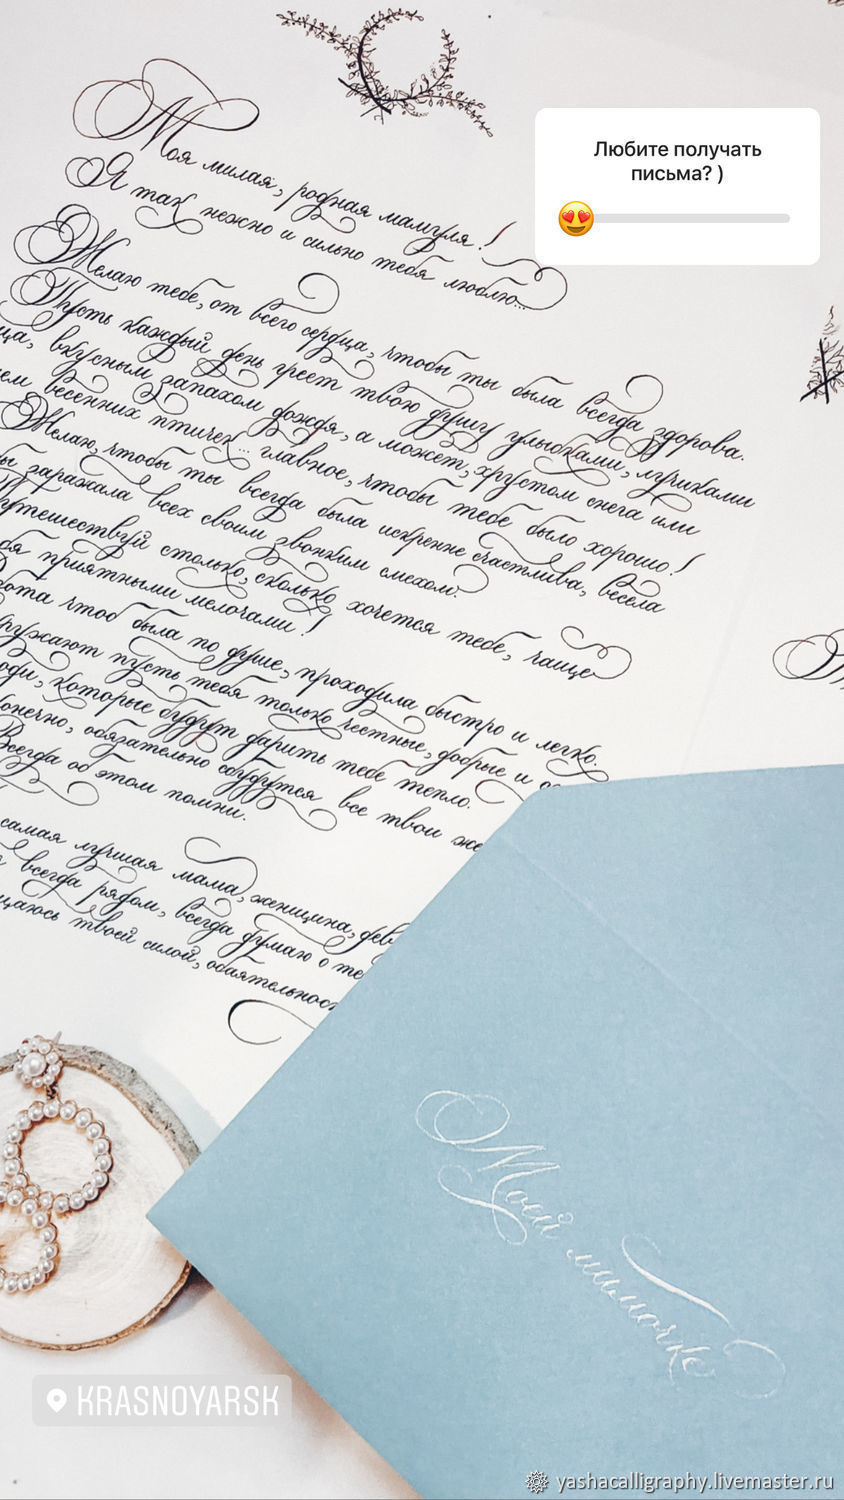 Любите получать
письма? )
Моя милая, родная мамуля!
Я так нежно и сильно тебя люблю...
Желаю тебе, от всего сердца, чтобы ты была всегда здорова.
Пусть каждый день греет твою душу улыбками, лучиками
вкусным запахом дождя, а может, хрустом снега или
весенних птичек... главное, чтобы тебе было хорошо!
Желаю, чтобы ты всегда была искренне счастлива, весела
заражала всех своим звонким смехом.
Путешествуй столько, сколько хочется тебе, чаще
приятными мелочами!
чтоб была по душе, проходила быстро и легко.
пусть тебя только честные, добрые и
которые будут дарить тебе тепло.
обязательно сбудутся все твои
Всегда об этом помни.
самая лучшая мама, женщина,
всегда рядом, всегда думаю о
твоей силой,
Моей мамочке
KRASNOYARSK
yashacalligraphy.livemaster.ru